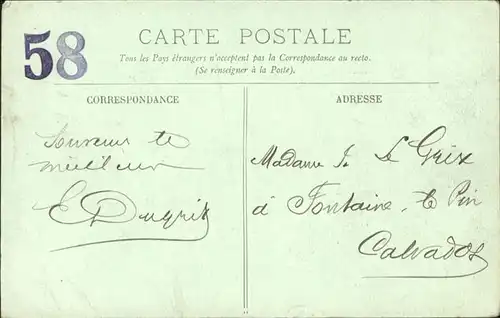 58
CARTE POSTALE
Tous les Pays étrangers n'acceptent pas la Correspondance au recto.
(Se renseigner à la Poste).
CORRESPONDANCE
ADRESSE
meilleur
Madame
Le
à Fontaine, le Pin
Calvados